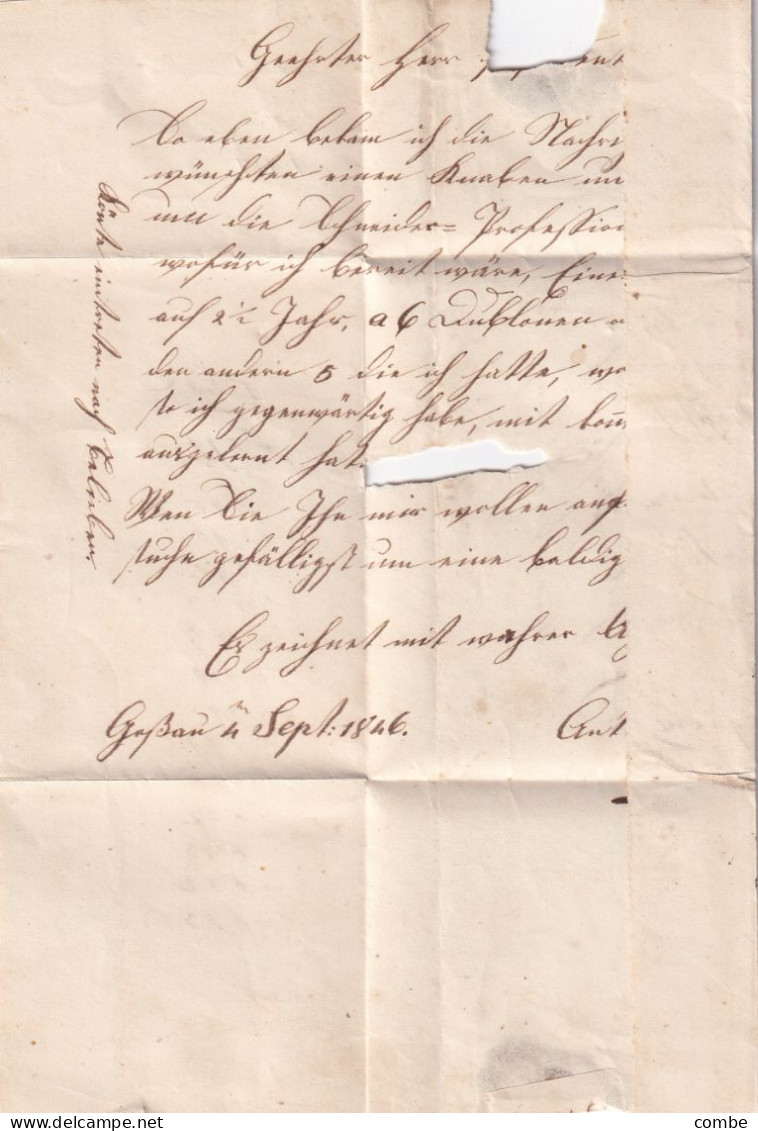 Geehrter Herr
So eben bekam ich die Nachri
wünschten einen Knaben un
um die Schneider= Profession
wofür ich bereit wäre, Eine
auf 2½ Jahr, a 6 Dublonen
den andern 5 die ich hatte, wo
so ich gegenwärtig habe, mit
ausgelernt hat.
Wen Sie Ihn mir wollen
suche gefälligst um eine baldig
Es zeichnet mit wahrer
Goßau 4 Sept: 1846.
Ant
Könte eintreten nach belieben.
delcampe.net
combe